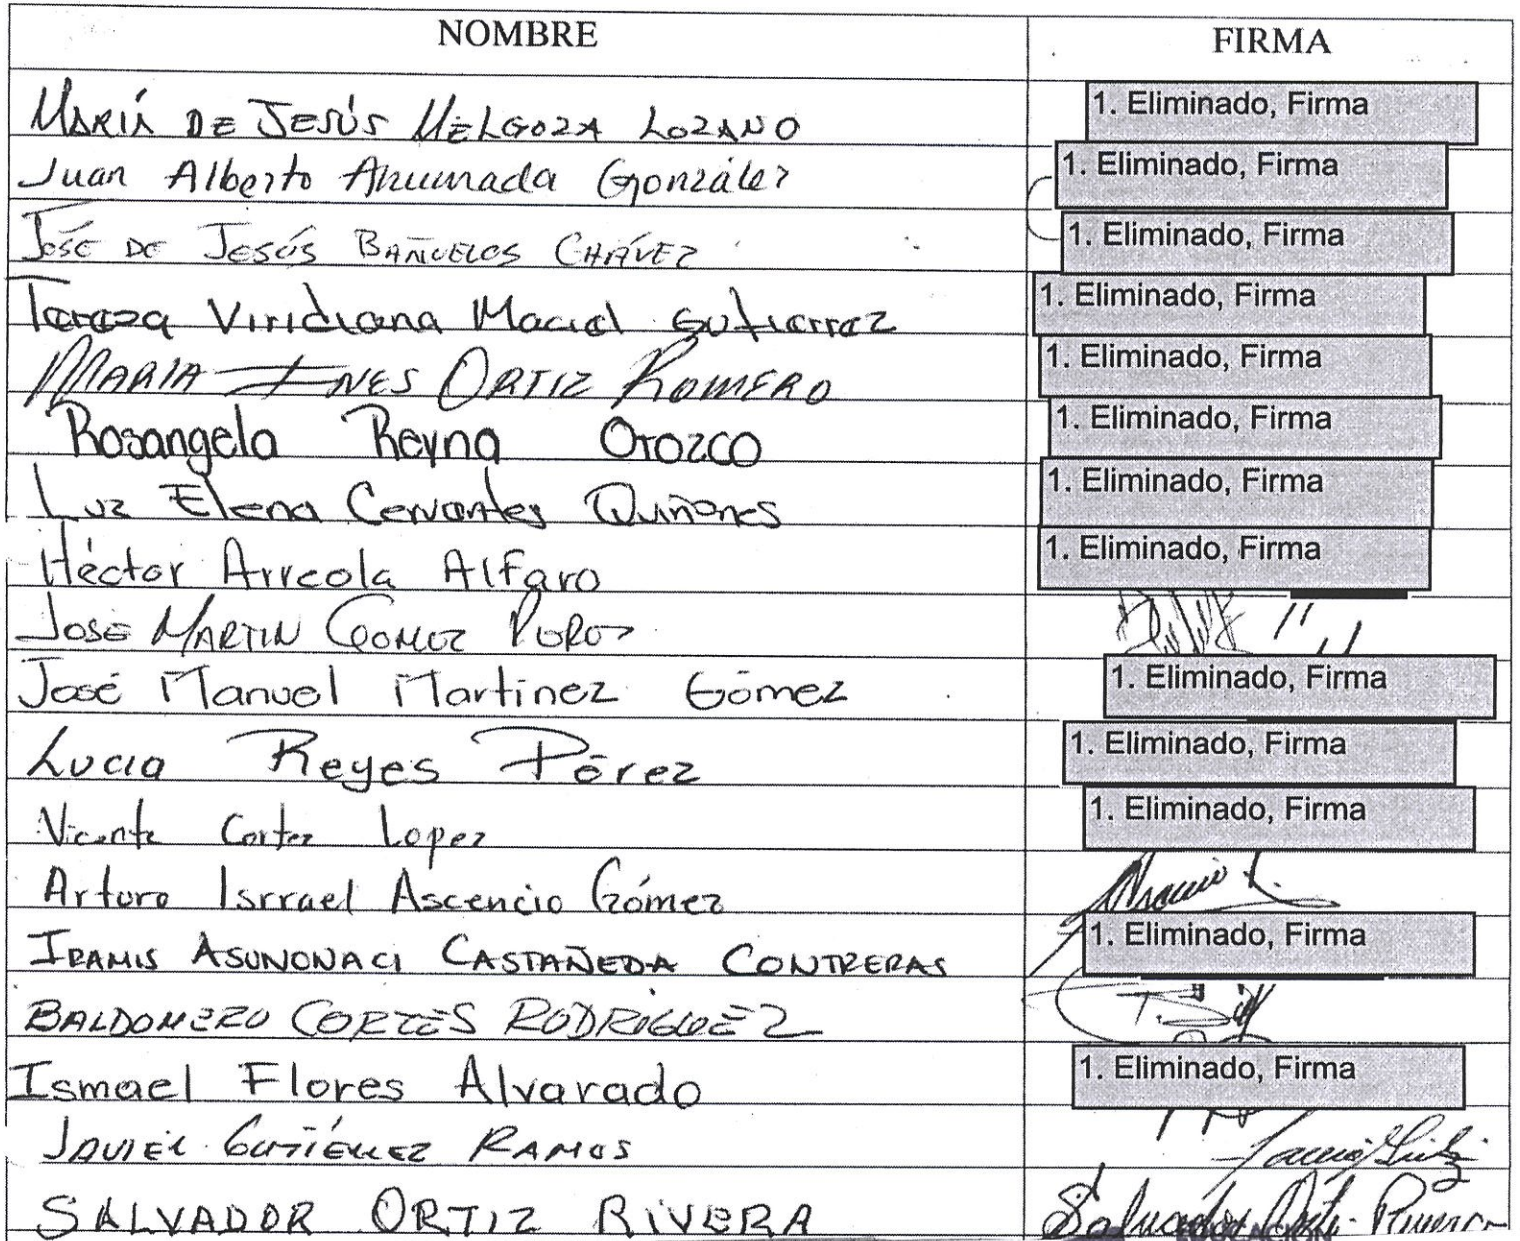 NOMBRE FIRMA
MARIA DE JESÚS MELGOZA LOZANO 1. Eliminado, Firma
Juan Alberto Ahumada González 1. Eliminado, Firma
JOSÉ DE JESÚS BAÑUELOS CHÁVEZ 1. Eliminado, Firma
Tereza Viridiana Maciel Gutierrez 1. Eliminado, Firma
MARIA INES ORTIZ ROMERO 1. Eliminado, Firma
Rosangela Reyna Orozco 1. Eliminado, Firma
Luz Elena Cervantes Quiñones 1. Eliminado, Firma
Héctor Arreola Alfaro 1. Eliminado, Firma
JOSÉ MARTIN GOMEZ PEREZ
José Manuel Martínez Gómez 1. Eliminado, Firma
Lucia Reyes Pérez 1. Eliminado, Firma
Vicente Cortez Lopez 1. Eliminado, Firma
Arturo Isrrael Ascencio Gómez
IRAMIS ASUNONACI CASTAÑEDA CONTRERAS 1. Eliminado, Firma
BALDOMERO CORTÉS RODRÍGUEZ
Ismael Flores Alvarado 1. Eliminado, Firma
JAVIER GUTIÉRREZ RAMOS
SALVADOR ORTIZ RIVERA Salvador Ortiz Rivera
EDUCACIÓN